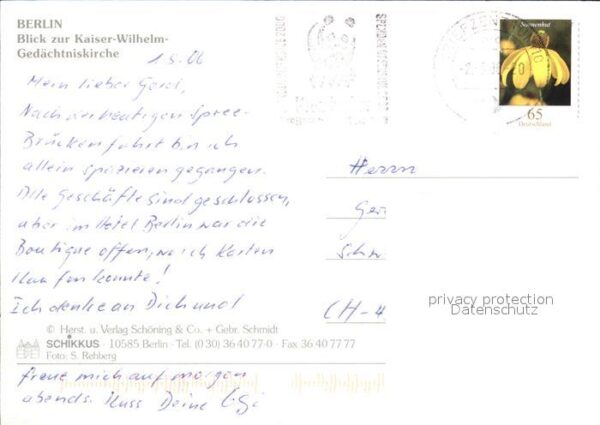 BERLIN
Blick zur Kaiser-Wilhelm-
Gedächtniskirche
1.5.06
Mein lieber Gerd,
Nach der heutigen Spree-
Brückenfahrt bin ich
allein spazieren gegangen.
Alle Geschäfte sind geschlossen,
aber im Hotel Berlin war die
Boutique offen, wo ich Karten
kaufen konnte!
Ich denke an Dich und
© Herst. u. Verlag Schöning & Co. + Gebr. Schmidt
SCHIKKUS · 10585 Berlin · Tel. (0 30) 36 40 77-0 · Fax 36 40 77 77
Foto: S. Rehberg
freue mich auf morgen
abends. Kuss Deine
Sonnenhut
65
Deutschland
Herrn
Ger
Schw
CH-4
privacy protection
Datenschutz